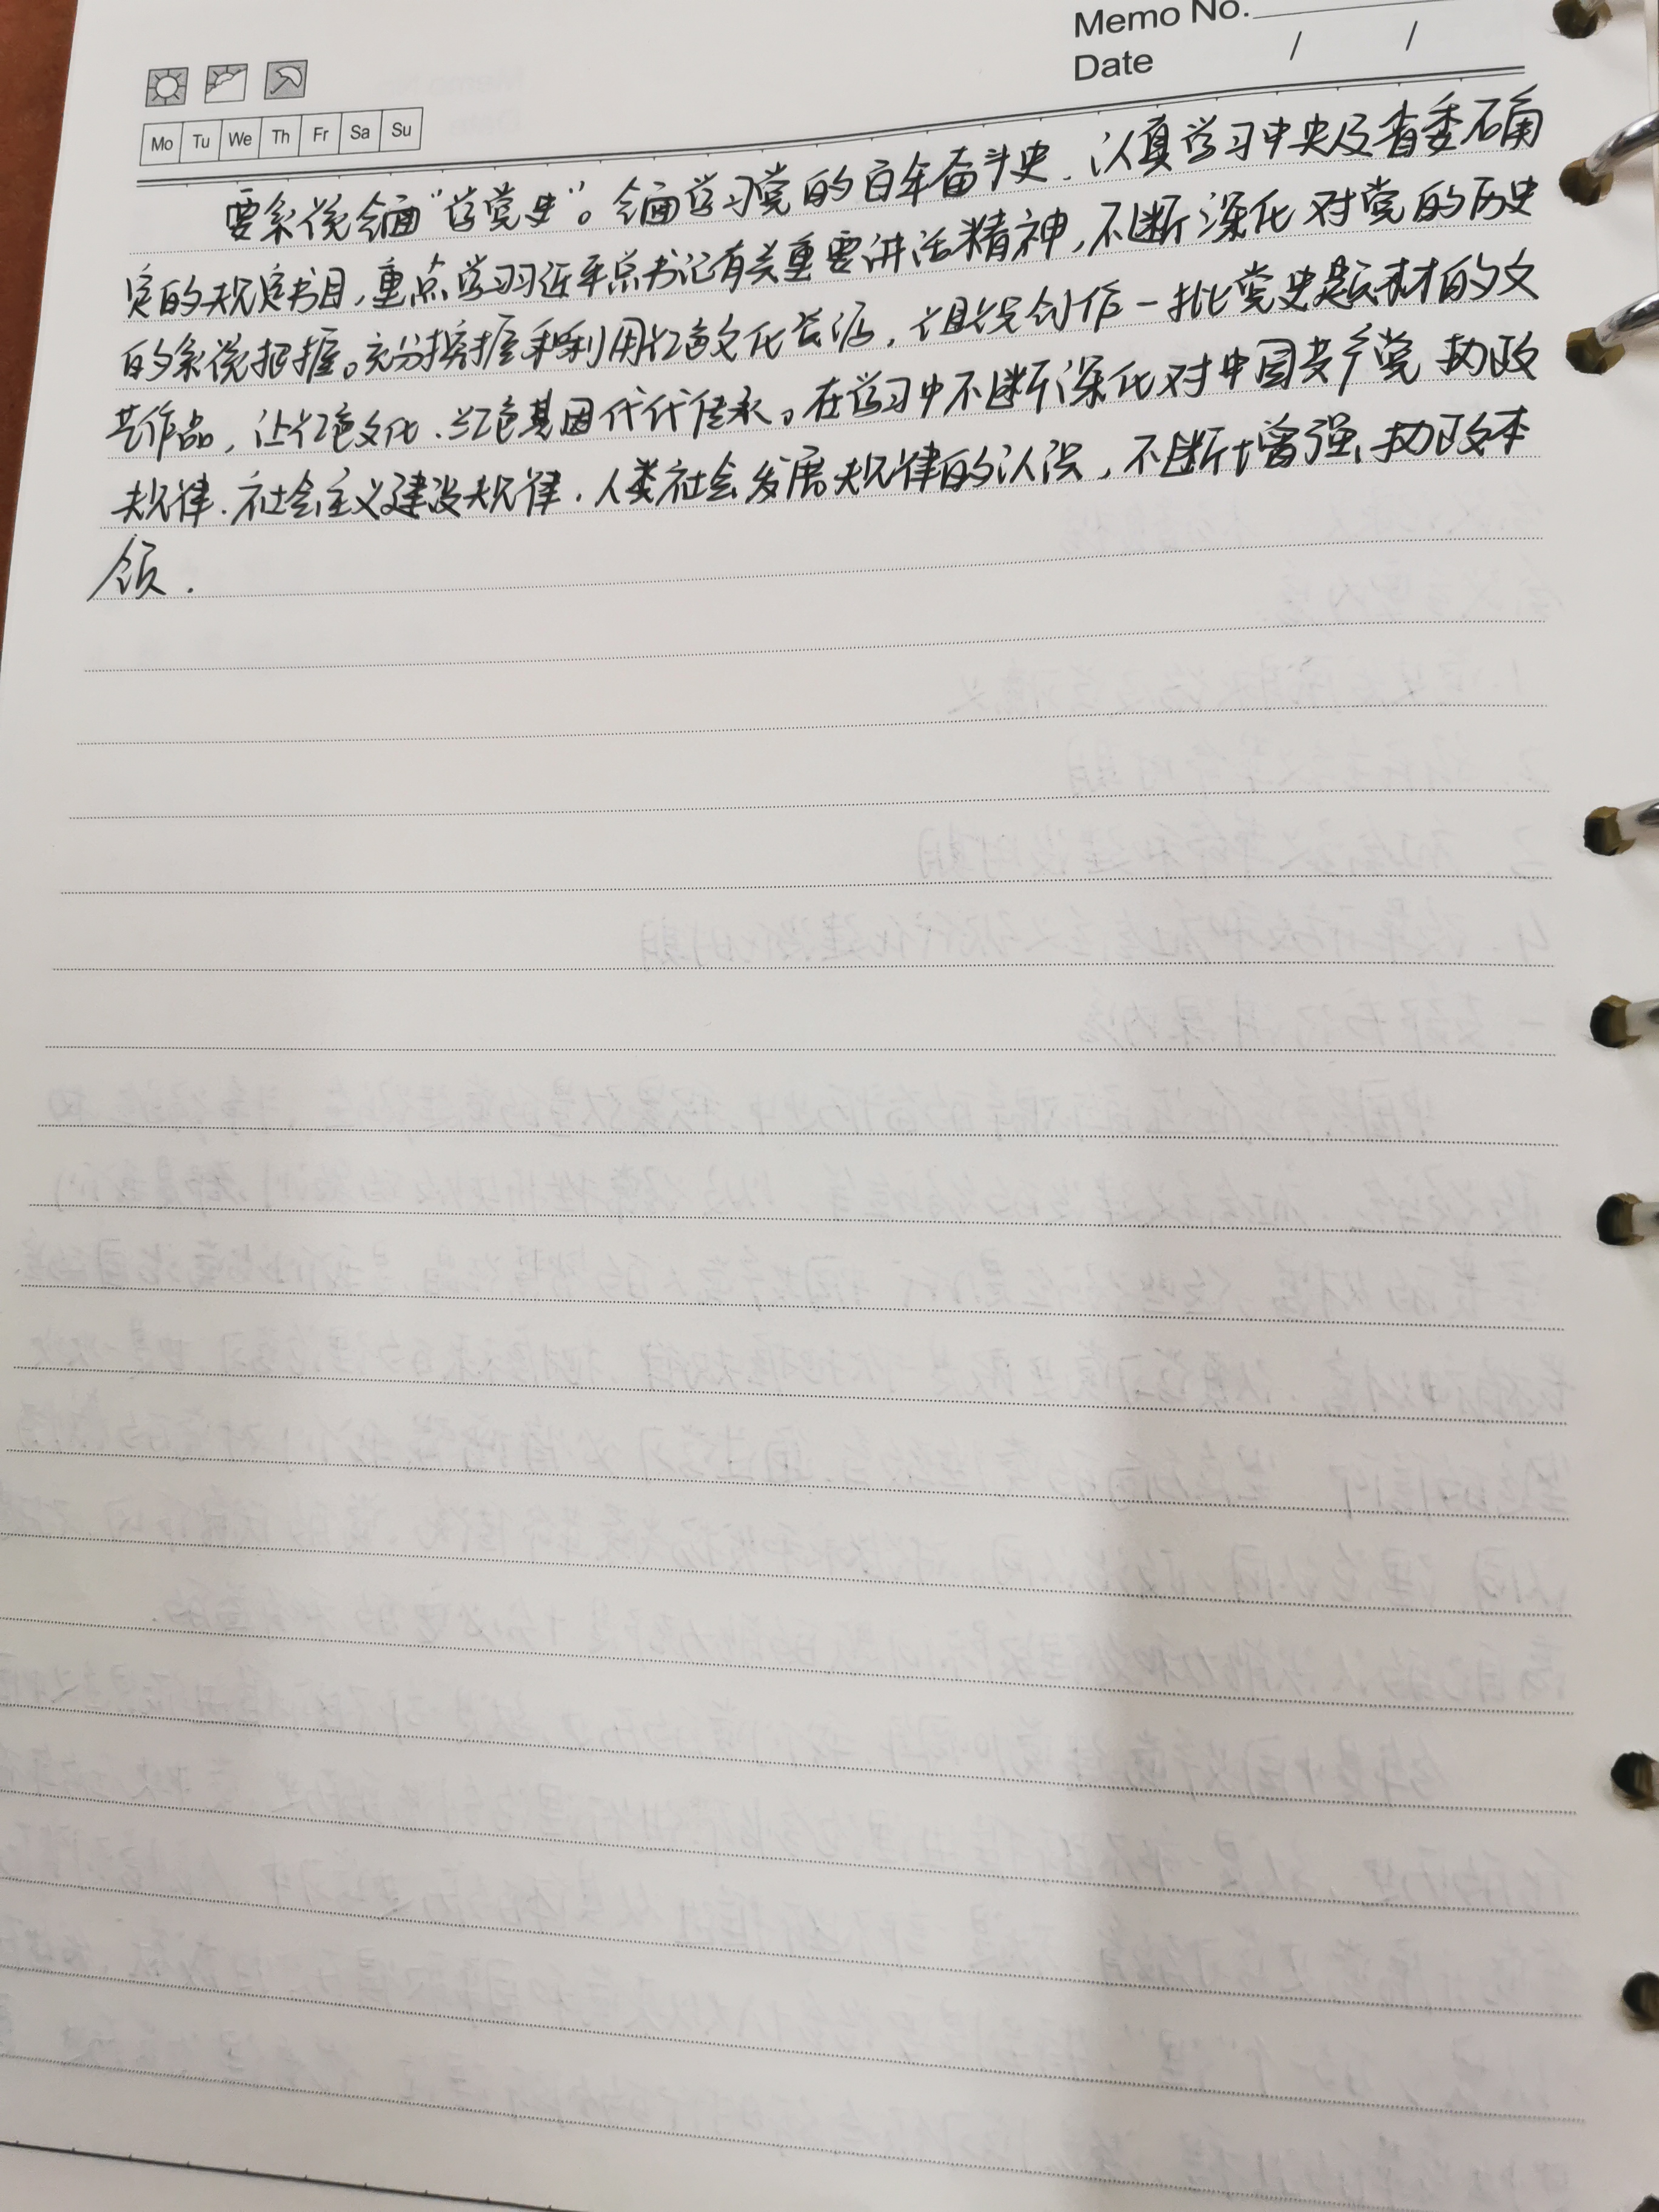 Memo No.
Date / /
Mo Tu We Th Fr Sa Su
要系统全面“学党史”。全面学习党的百年奋斗史、认真学习中央及省委确
定的规定书目,重点学习习近平总书记有关重要讲话精神,不断深化对党的历史
的系统把握。充分挖掘和利用红色文化资源,组织创作一批党史题材的文
艺作品,让红色文化、红色基因代代传承。在学习中不断深化对中国共产党执政
规律、社会主义建设规律、人类社会发展规律的认识,不断增强执政本
领.